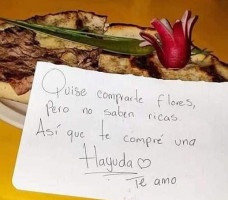 Quise comprarte flores,
pero no saben ricas.
Así que te compré una
Tlayuda ♡
Te amo